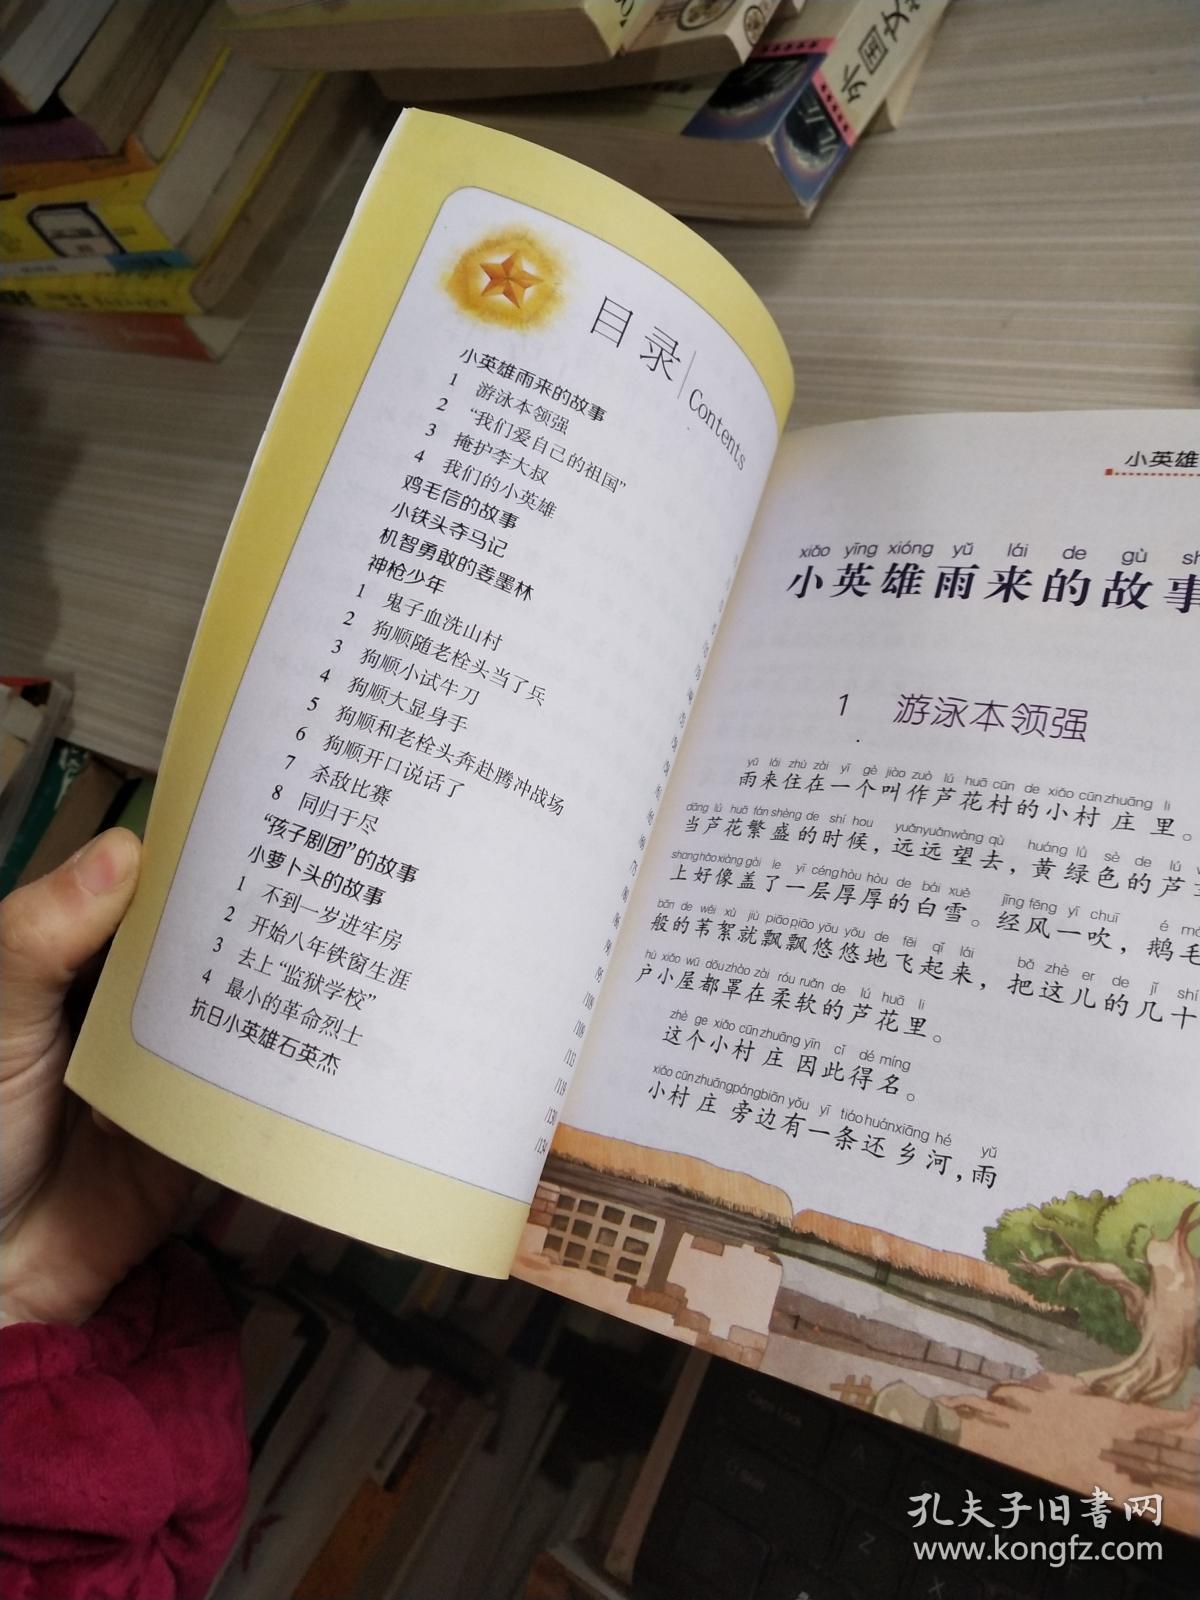 外国文
九后
目录
Contents
小英雄雨来的故事
1 游泳本领强
2 “我们爱自己的祖国”
3 掩护李大叔
4 我们的小英雄
鸡毛信的故事
小铁头夺马记
机智勇敢的姜墨林
神枪少年
1 鬼子血洗山村
2 狗顺随老栓头当了兵
3 狗顺小试牛刀
4 狗顺大显身手
5 狗顺和老栓头奔赴腾冲战场
6 狗顺开口说话了
7 杀敌比赛
8 同归于尽
“孩子剧团”的故事
小萝卜头的故事
1 不到一岁进牢房
2 开始八年铁窗生涯
3 去上“监狱学校”
4 最小的革命烈士
抗日小英雄石英杰
/109
/112
/119
/130
/134
小英雄
xiǎo yīng xióng yǔ lái de gù
小英雄雨来的故事
1 游泳本领强
yǔ lái zhù zài yī gè jiào zuò lú huā cūn de xiǎo cūn zhuāng li
雨来住在一个叫作芦花村的小村庄里。
dāng lú huā fán shèng de shí hou yuǎn yuǎn wàng qù huáng lǜ sè de lú
当芦花繁盛的时候，远远望去，黄绿色的芦
shang hǎo xiàng gài le yī céng hòu hòu de bái xuě jīng fēng yī chuī é
上好像盖了一层厚厚的白雪。经风一吹，鹅毛
bān de wěi xù jiù piāo piāo yōu yōu de fēi qǐ lái bǎ zhè er de jǐ shí
般的苇絮就飘飘悠悠地飞起来，把这儿的几十
hù xiǎo wū dōu zhào zài róu ruǎn de lú huā li
户小屋都罩在柔软的芦花里。
zhè ge xiǎo cūn zhuāng yīn cǐ dé míng
这个小村庄因此得名。
xiǎo cūn zhuāng páng biān yǒu yī tiáo huán xiāng hé yǔ
小村庄旁边有一条还乡河，雨
Caps Lock
孔夫子旧书网
www.kongfz.com